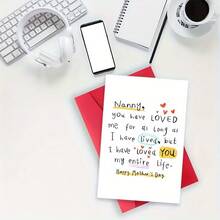 Nanny,
you have LOVED
me for as long as
I have lived, but
I have loved YOU
my entire life.
Happy Mother's Day